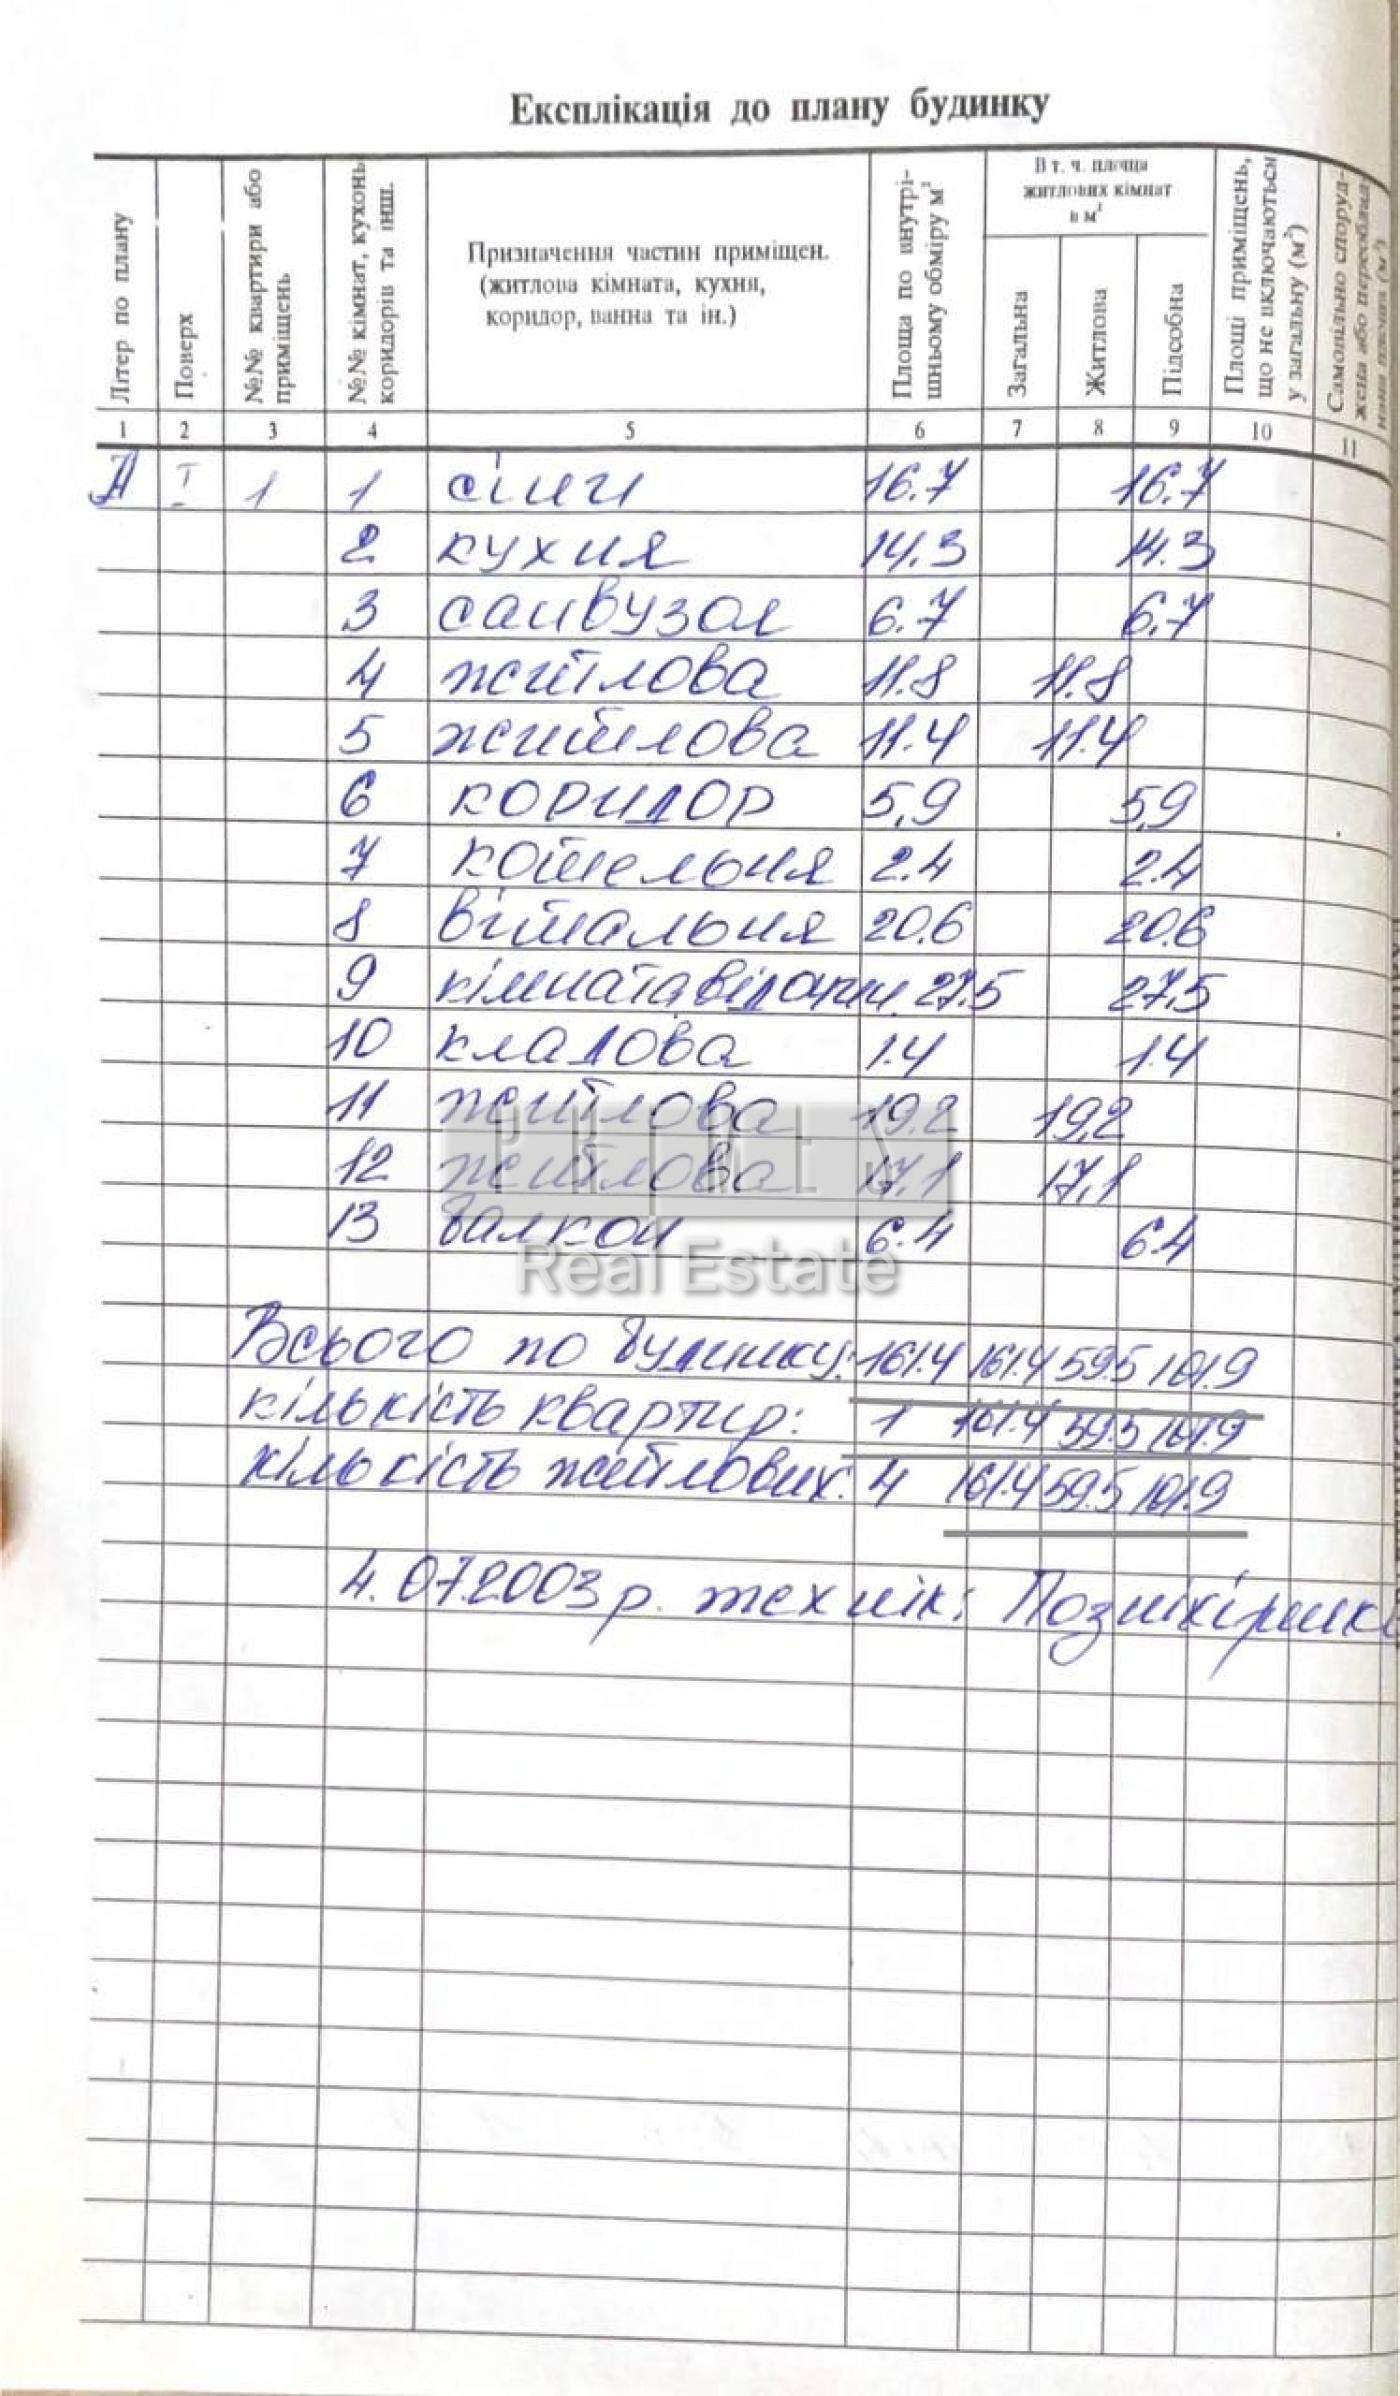 Експлікація до плану будинку
Літер по плану
Поверх
№№ квартири або приміщень
№№ кімнат, кухонь коридорів та інш.
Призначення частин приміщен.
(житлова кімната, кухня,
коридор, ванна та ін.)
Площа по внутрішньому обміру м²
В т. ч. площа
житлових кімнат
в м²
Загальна
Житлова
Підсобна
Площі приміщень, що не включаються у загальну (м²)
Самовільно споруджена або переобладнана площа (м²)
1 2 3 4 5 6 7 8 9 10 11
А І 1 1 сіни 16.7 16.7
2 кухня 14.3 14.3
3 санвузол 6.7 6.7
4 житлова 11.8 11.8
5 житлова 11.4 11.4
6 коридор 5,9 5,9
7 котельня 2.4 2.4
8 вітальня 20.6 20.6
9 кімната відпочин. 27.5 27,5
10 кладова 1.4 1.4
11 житлова 19.2 19,2
12 житлова 17.1 17,1
13 балкон 6.4 6.4
Всього по будинку: 161.4 161.4 59.5 101.9
кількість квартир: 1 161.4 59.5 101.9
кількість житлових: 4 161.4 59.5 101.9
4.07.2003 р. технік:
Real Estate